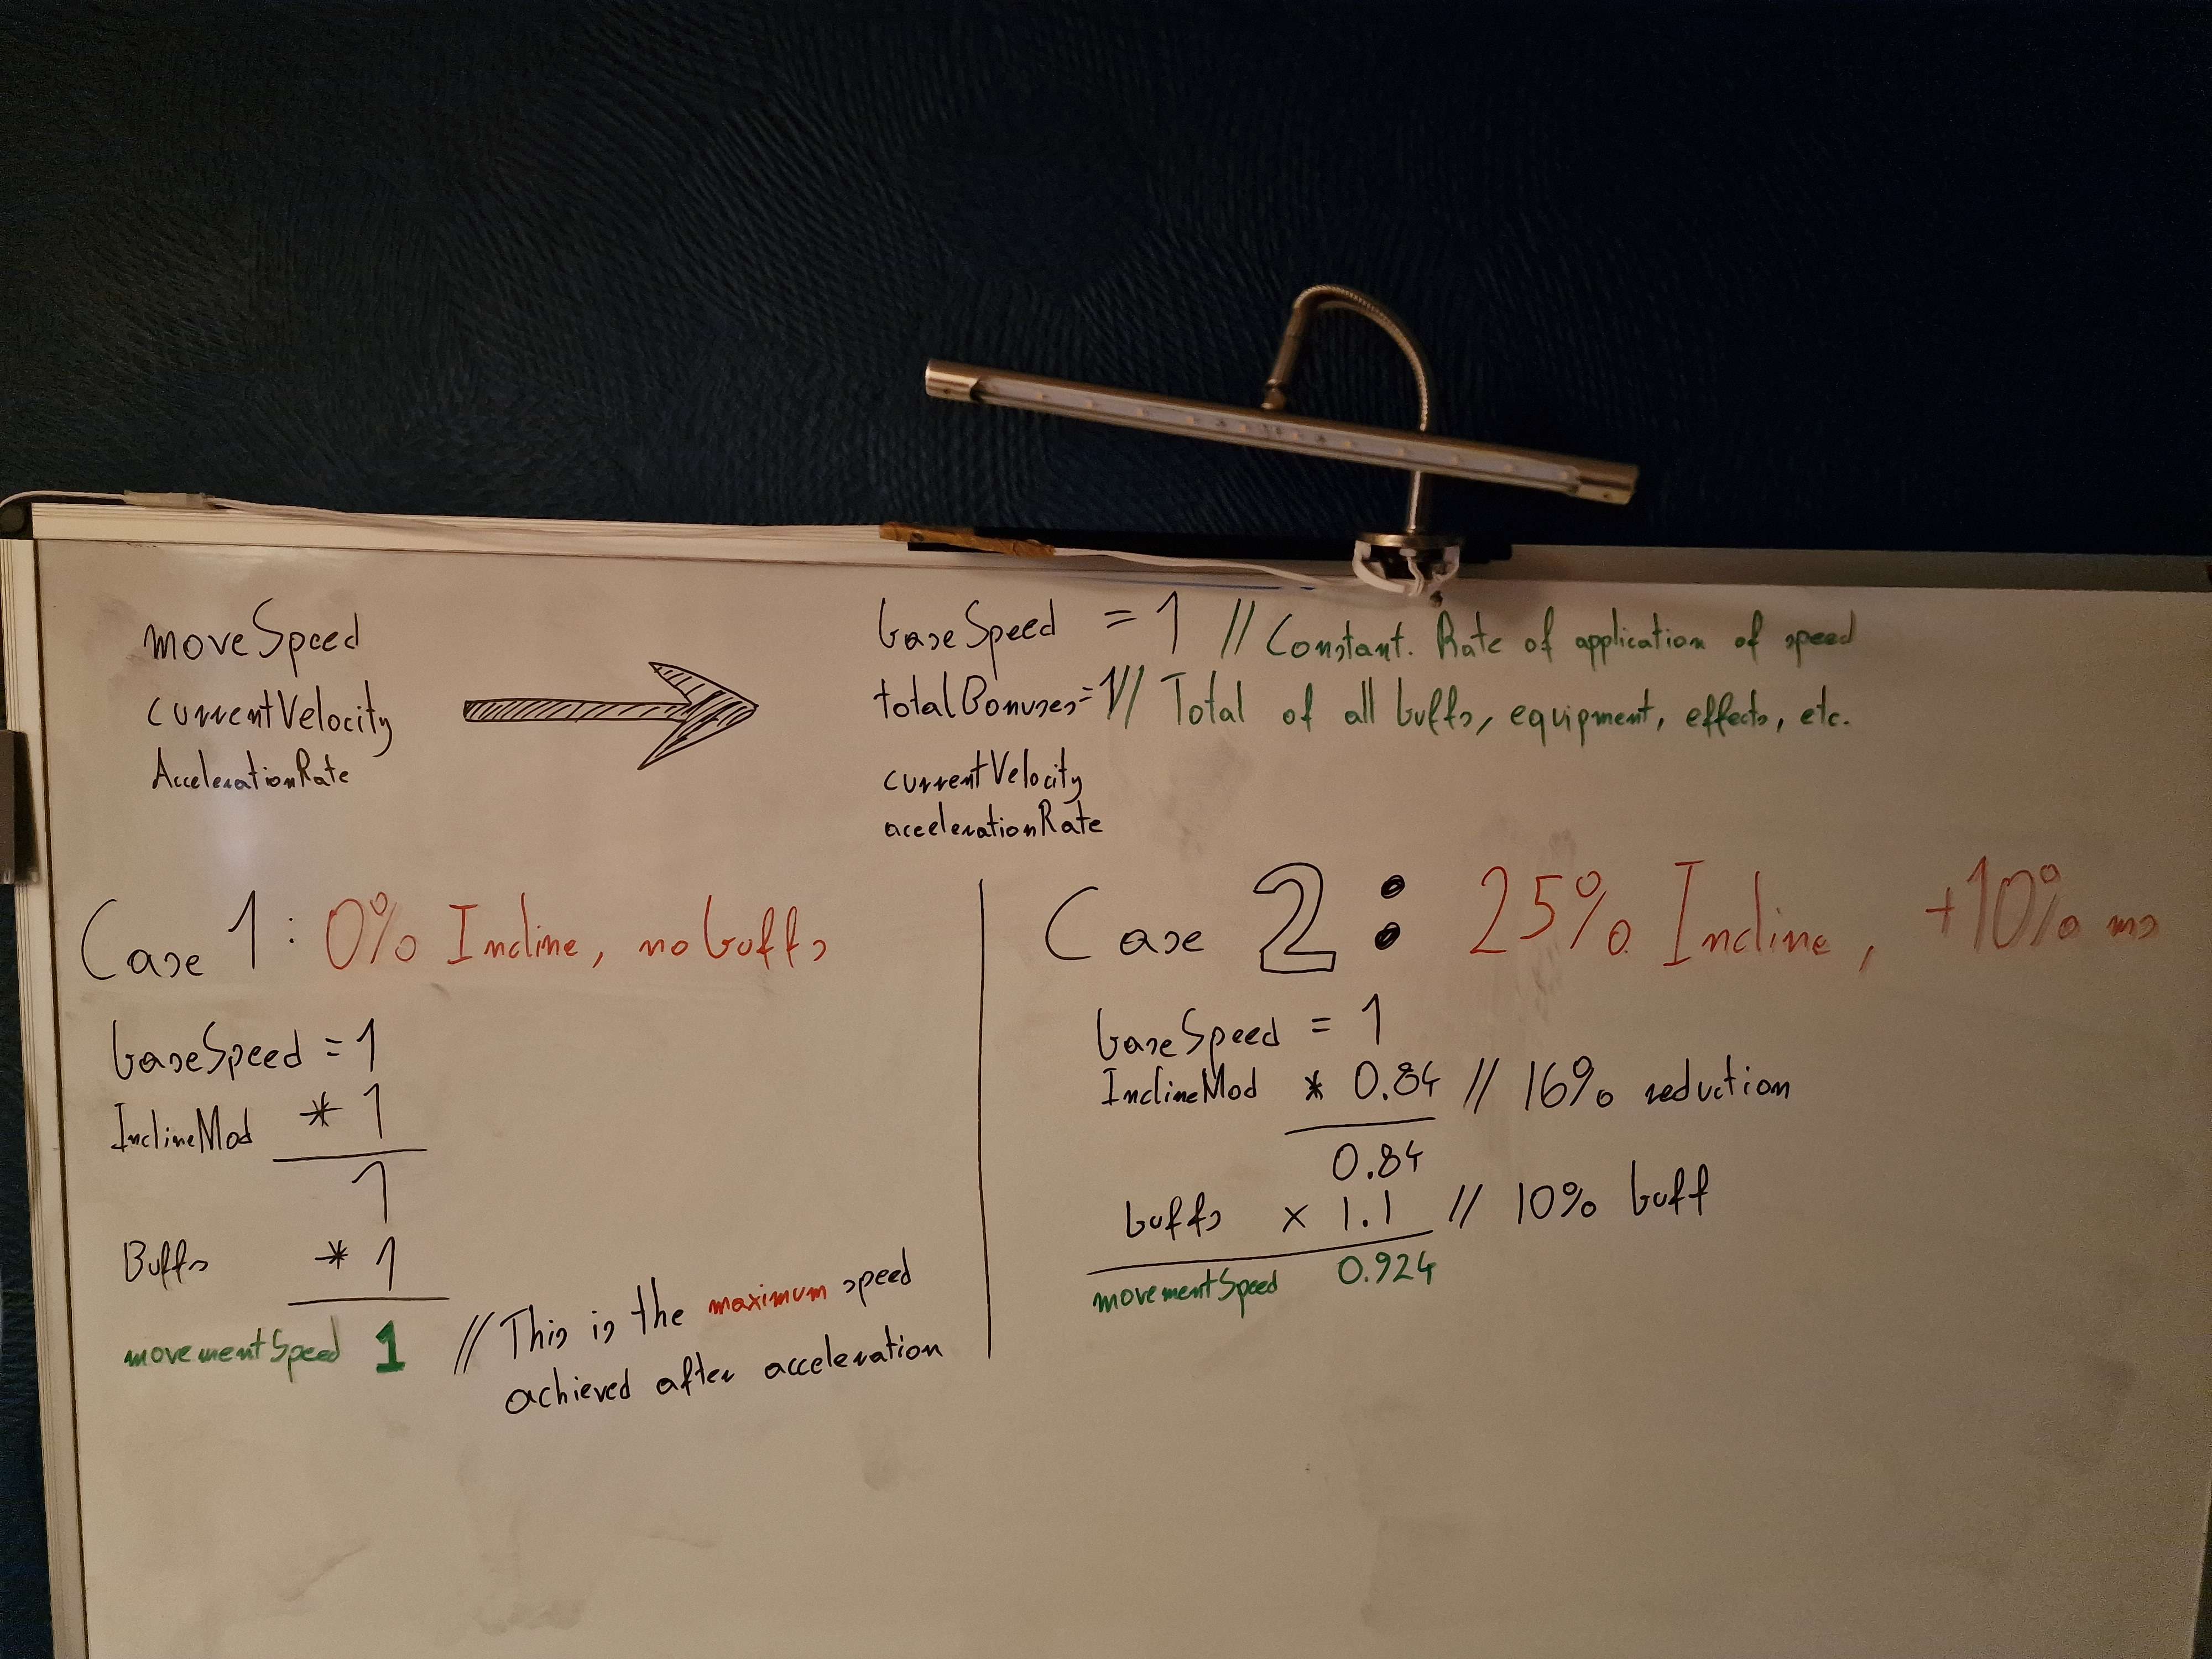 moveSpeed
currentVelocity
AccelerationRate
baseSpeed = 1 // Constant. Rate of application of speed
totalBonuses=1// Total of all buffs, equipment, effects, etc.
currentVelocity
accelerationRate
Case 1: 0% Incline, no buffs
baseSpeed = 1
InclineMod * 1
1
Buffs * 1
movementSpeed 1 // This is the maximum speed
achieved after acceleration
Case 2: 25% Incline, +10% ms
baseSpeed = 1
InclineMod * 0.84 // 16% reduction
0.84
buffs x 1.1 // 10% buff
movementSpeed 0.924